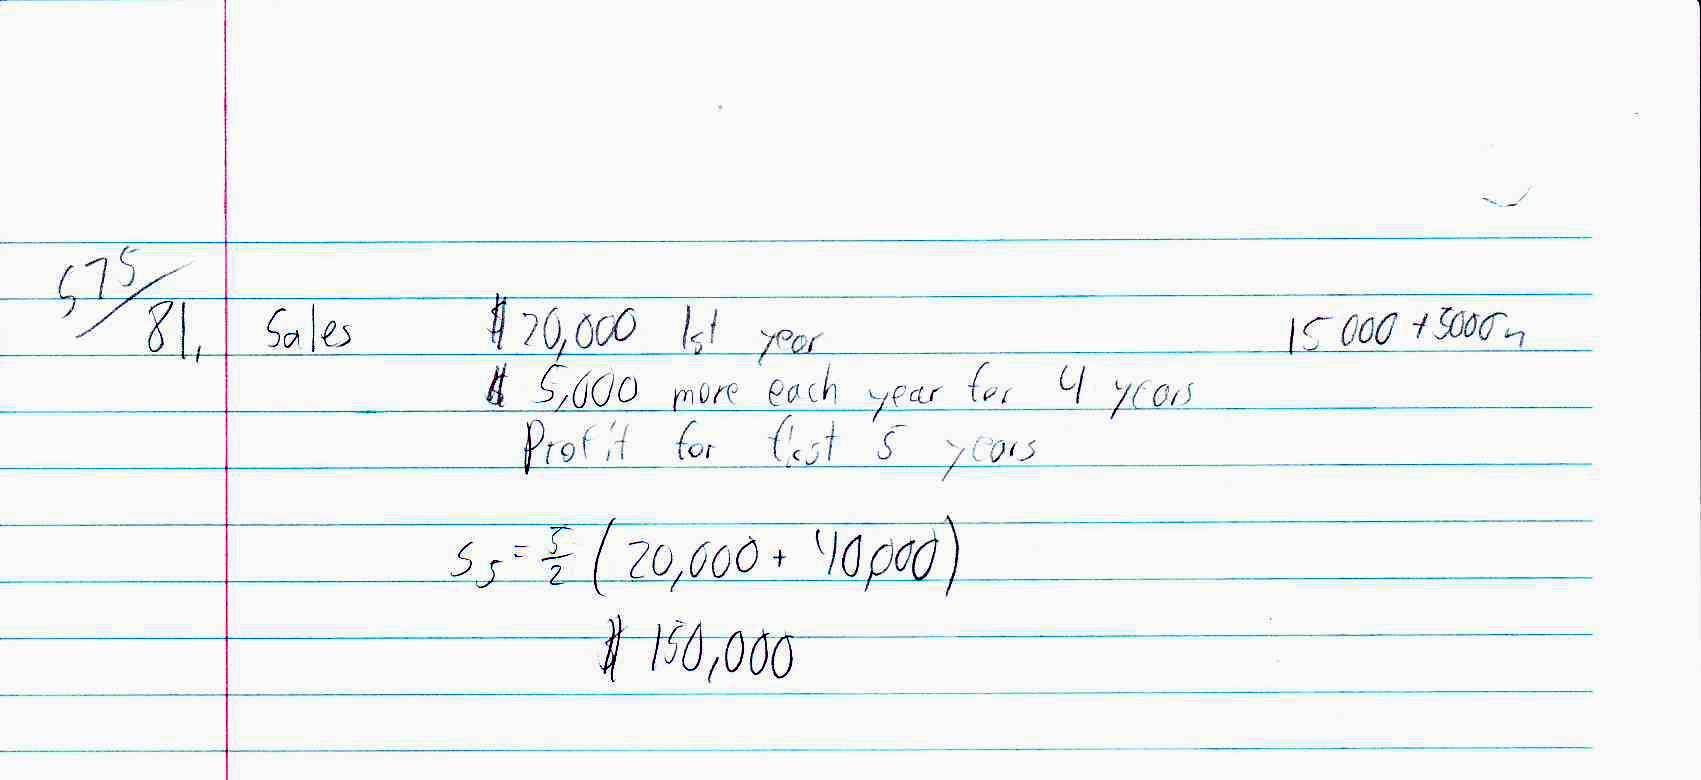 575/81. Sales $20,000 1st year 15000 + 5000n
$ 5,000 more each year for 4 years
Profit for first 5 years
S₅ = 5/2 (20,000 + 40,000)
$ 150,000